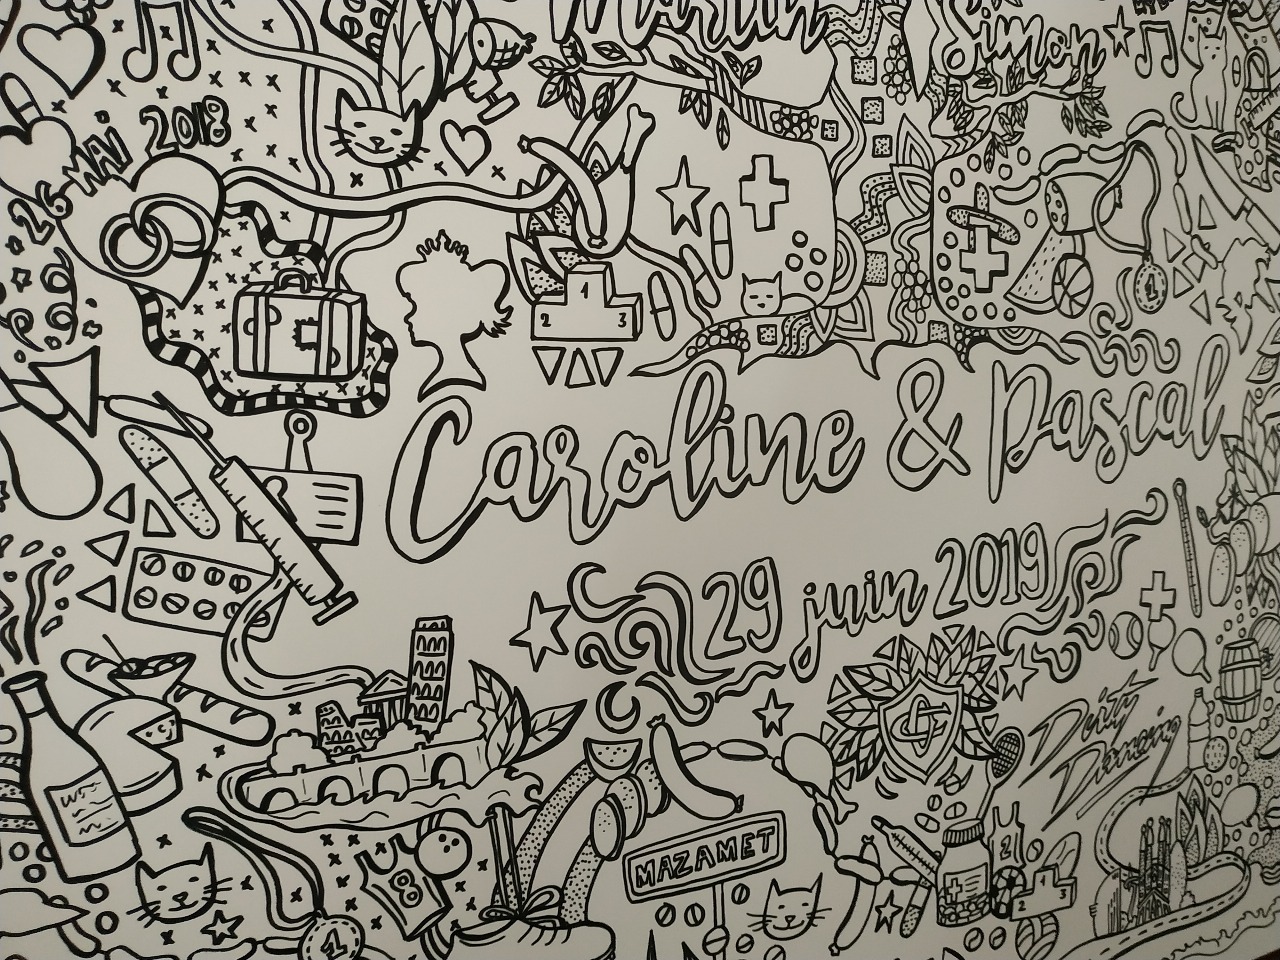 Martin
Simon
26 MAI 2018
1
2 3
1
Caroline & Pascal
29 juin 2019
Dirty
Dancing
MAZAMET
8
2
1
2 3
1